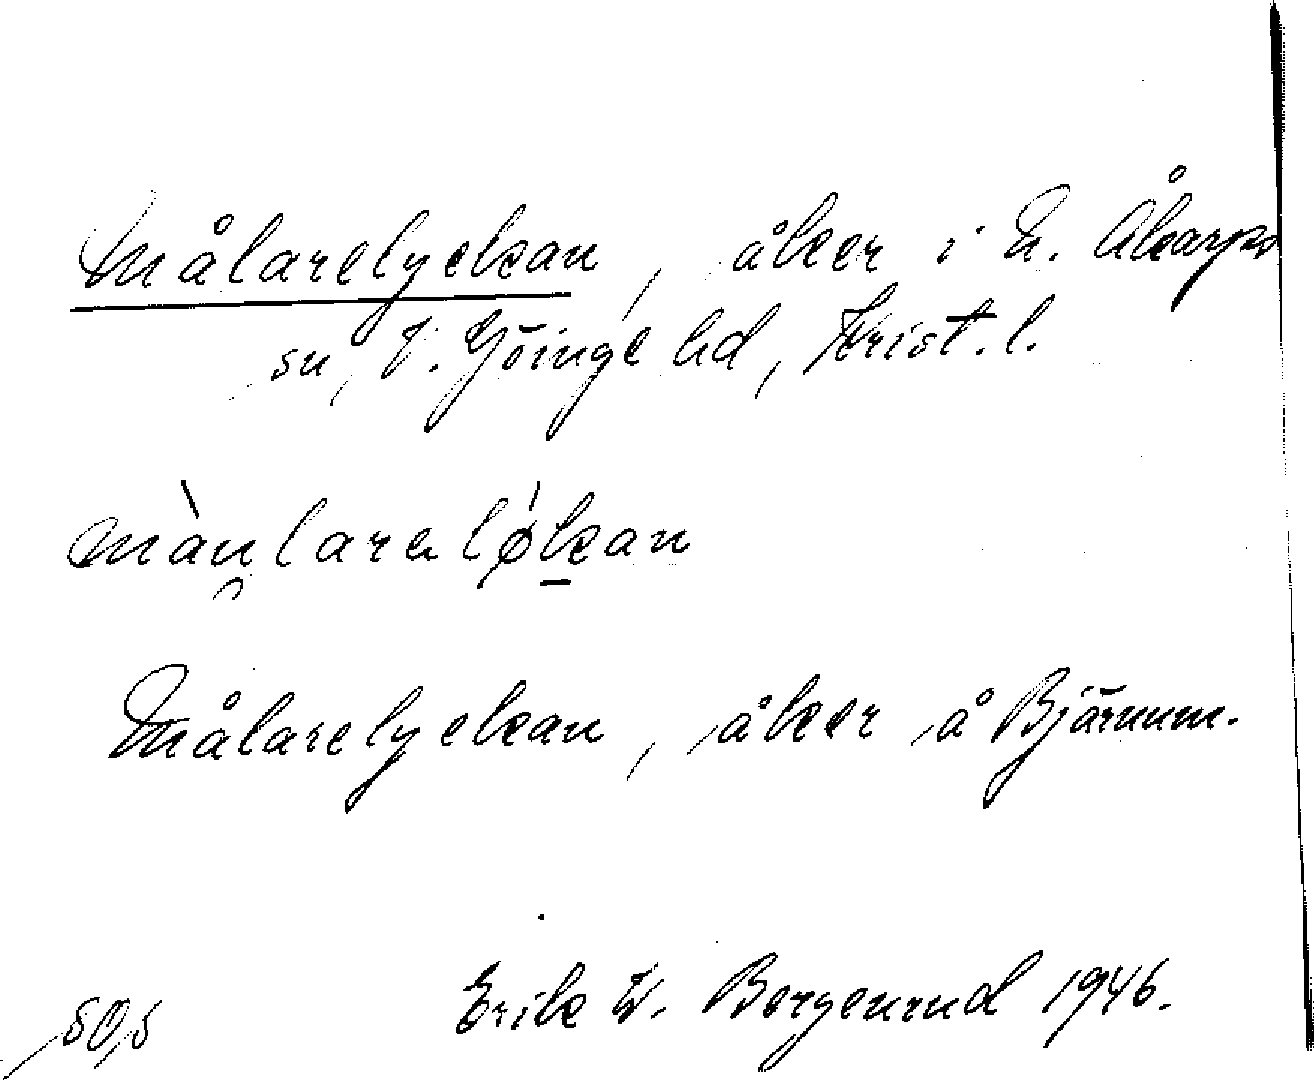 Målarelyckan, åker i N. Åkarps
sn, V. Göinge hd, Krist. l.
màu̯laraløkan
Målarelyckan, åker å Bjärnum.
Erik W. Bergenrud 1946.